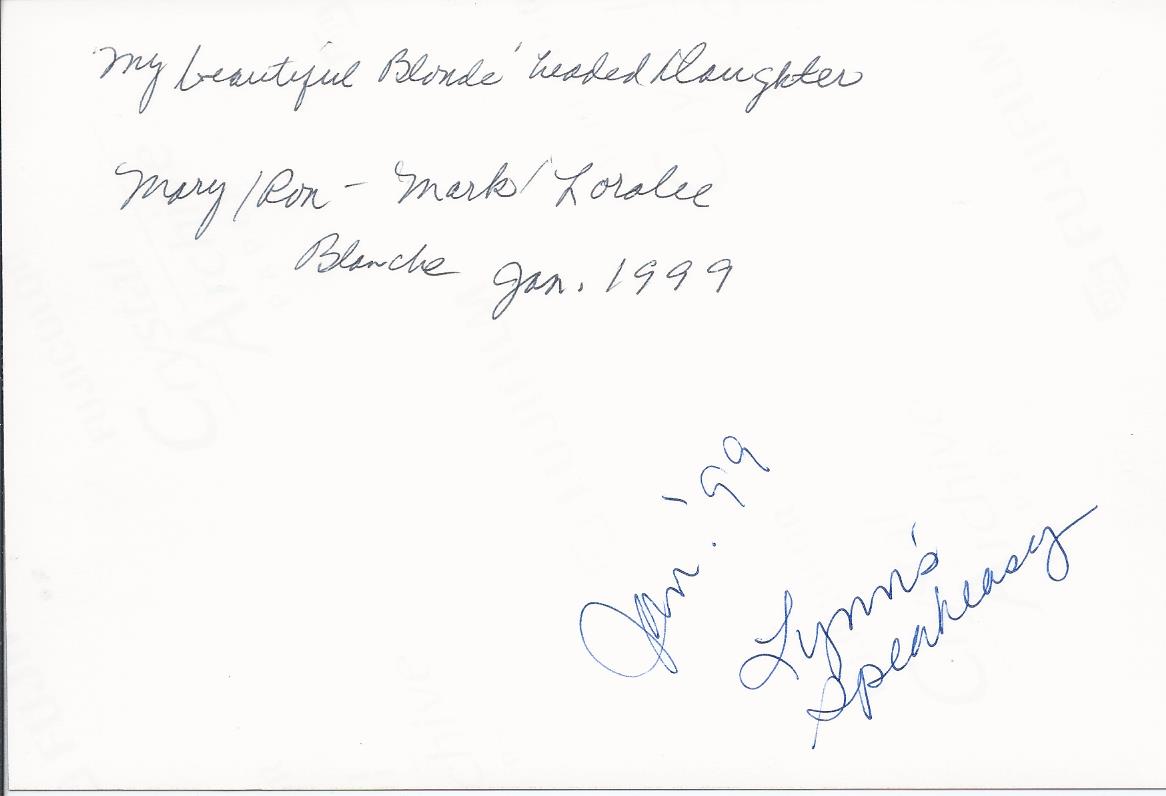 My beautiful Blonde' headed Daughter
Mary / Ron - Mark / Loralee
Blanche Jan. 1999
Jan. '99
Lynn's
Speakeasy
Crystal
Archive
FUJIFILM